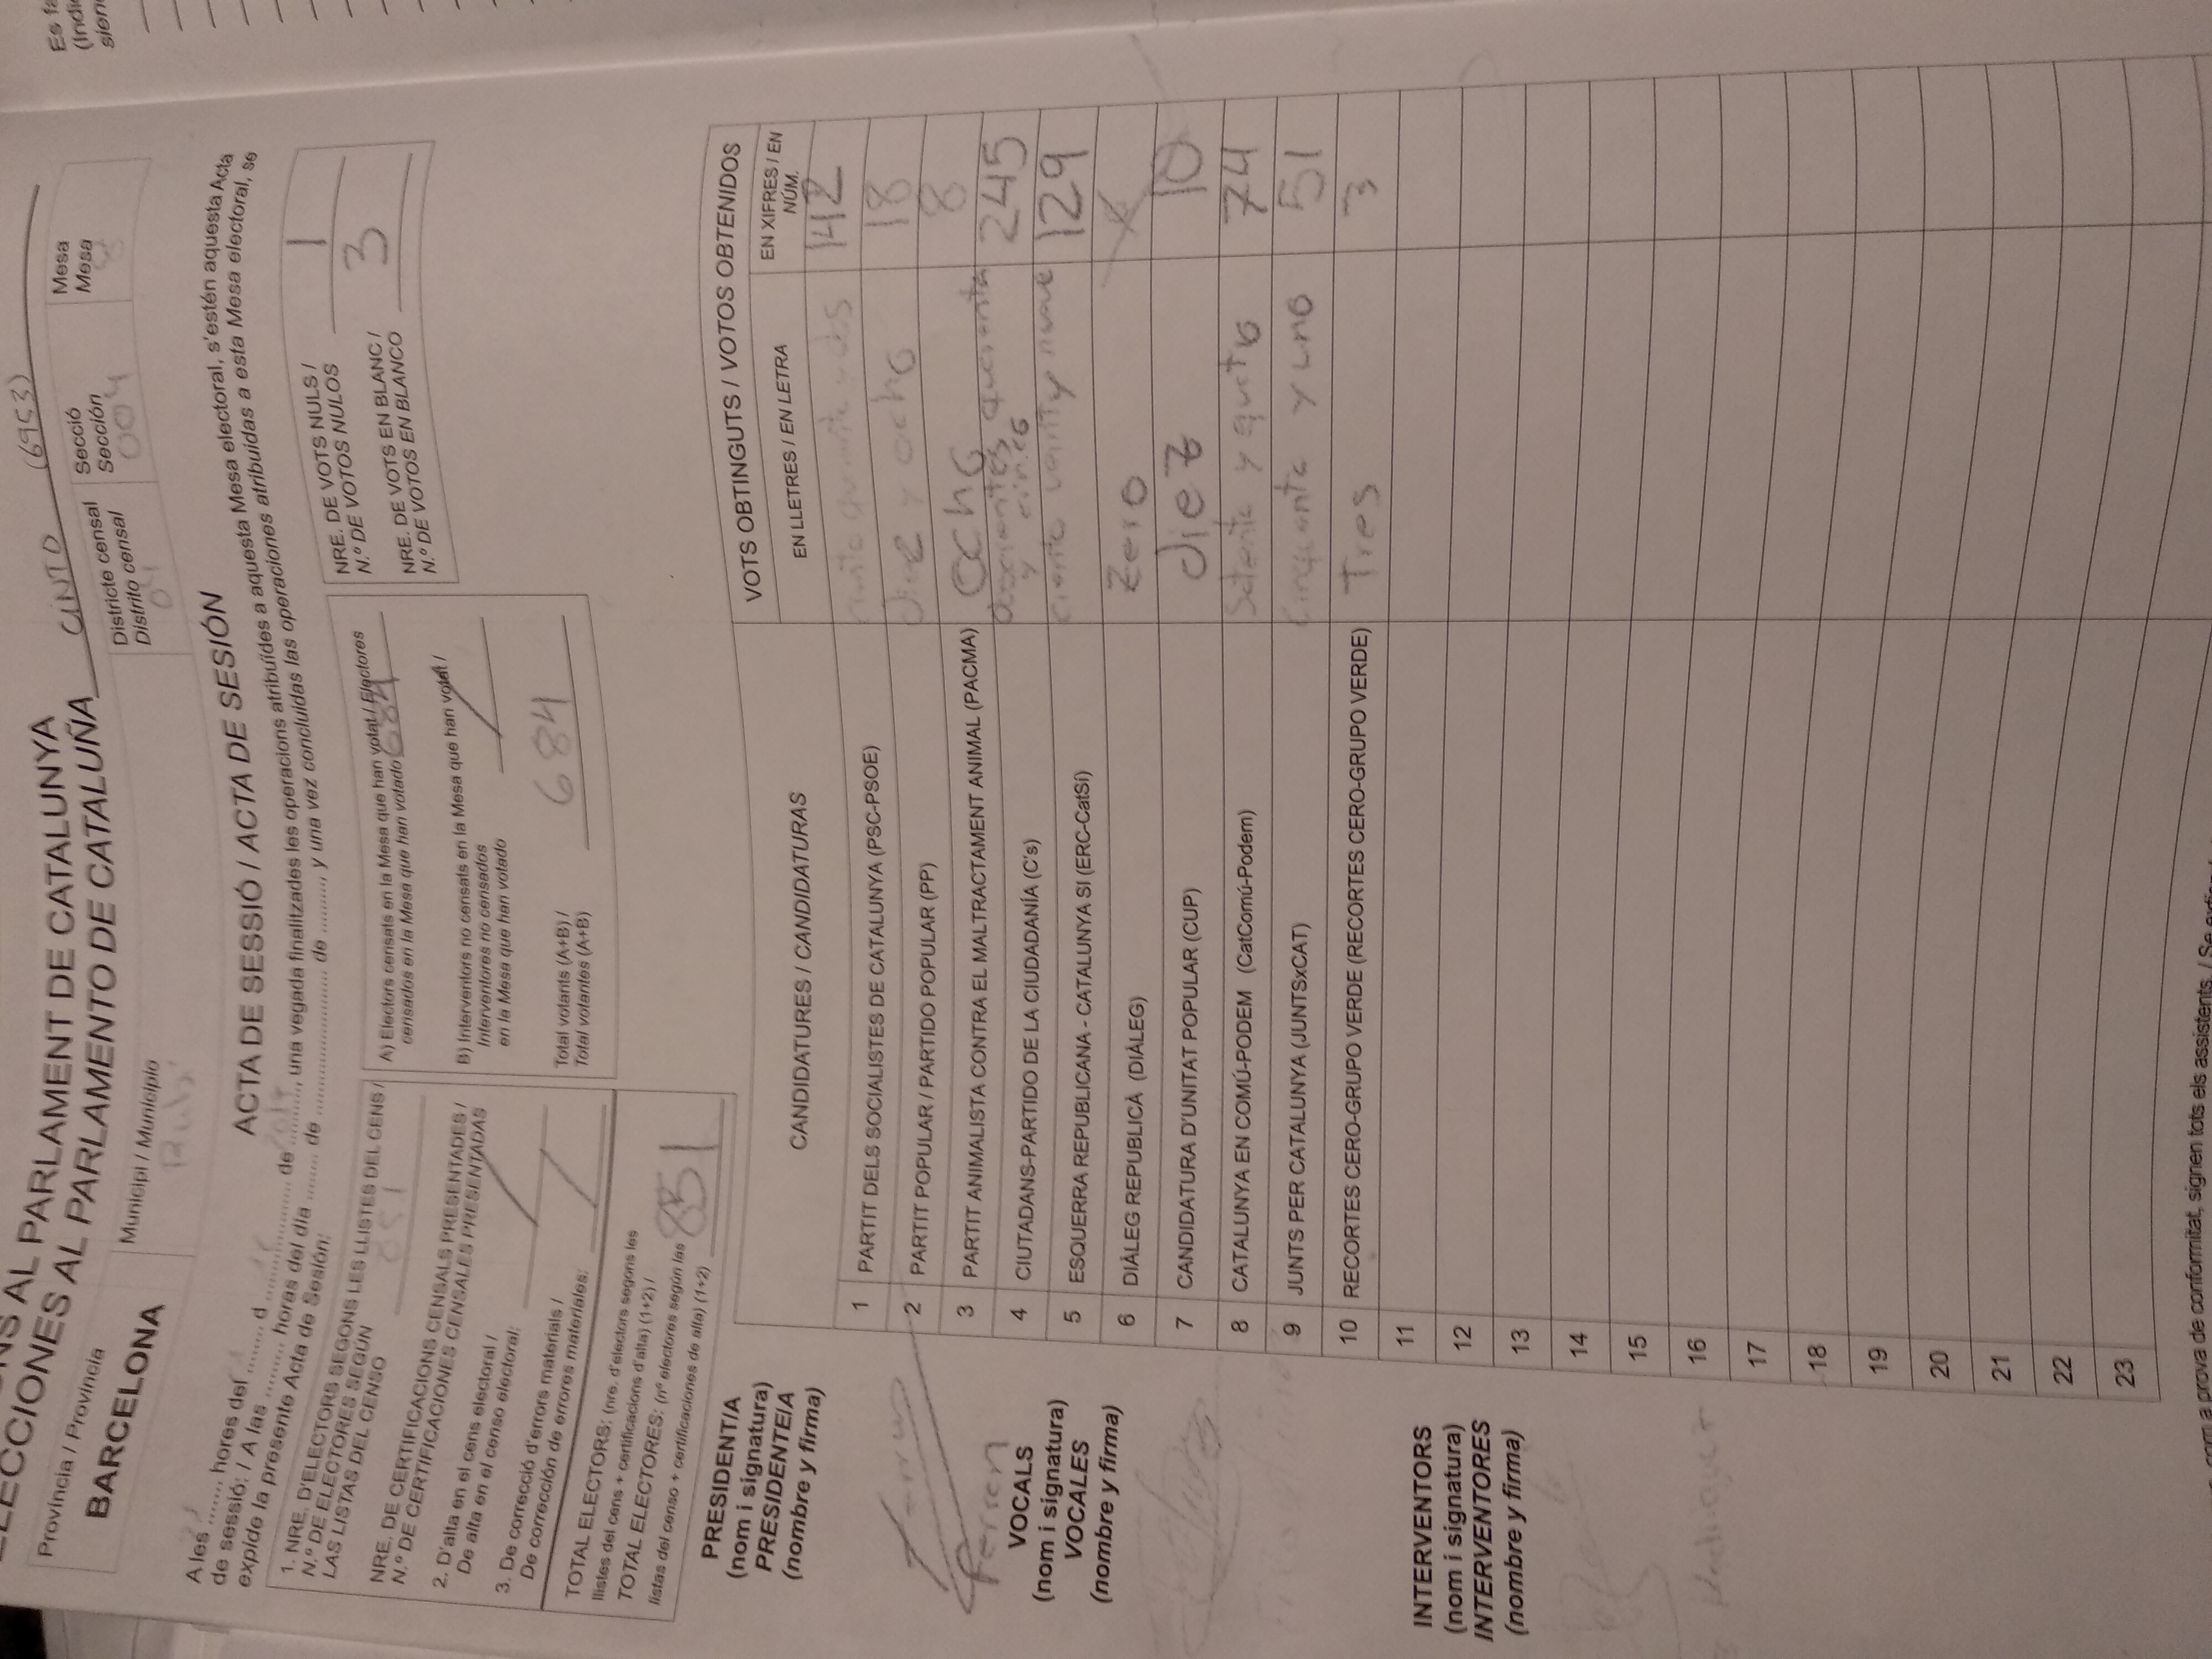 NS AL PARLAMENT DE CATALUNYA
ELECCIONES AL PARLAMENTO DE CATALUÑA
CINTO (6953)
Província / Provincia
BARCELONA
Municipi / Municipio
Rubí
Districte censal
Distrito censal
04
Secció
Sección
004
Mesa
Mesa
ACTA DE SESSIÓ / ACTA DE SESIÓN
A les ....... hores del ........ d .................... de .........., una vegada finalitzades les operacions atribuïdes a aquesta Mesa electoral, s'estén aquesta Acta
de sessió: / A las ......... horas del día ........ de ........................ de ........., y una vez concluidas las operaciones atribuidas a esta Mesa electoral, se
expide la presente Acta de Sesión:
1. NRE. D'ELECTORS SEGONS LES LLISTES DEL CENS /
N.º DE ELECTORES SEGÚN
LAS LISTAS DEL CENSO
851
NRE. DE CERTIFICACIONS CENSALS PRESENTADES /
N.º DE CERTIFICACIONES CENSALES PRESENTADAS
2. D'alta en el cens electoral /
De alta en el censo electoral: /
3. De correcció d'errors materials /
De corrección de errores materiales: /
TOTAL ELECTORS: (nre. d'electors segons les
llistes del cens + certificacions d'alta) (1+2) /
TOTAL ELECTORES: (nº electores según las
listas del censo + certificaciones de alta) (1+2)
851
A) Electors censats en la Mesa que han votat / Electores
censados en la Mesa que han votado 684
B) Interventors no censats en la Mesa que han votat /
Interventores no censados
en la Mesa que han votado /
Total votants (A+B) /
Total votantes (A+B)
684
NRE. DE VOTS NULS /
N.º DE VOTOS NULOS
1
NRE. DE VOTS EN BLANC /
N.º DE VOTOS EN BLANCO
3
PRESIDENT/A
(nom i signatura)
PRESIDENTE/A
(nombre y firma)
Ferran
VOCALS
(nom i signatura)
VOCALES
(nombre y firma)
INTERVENTORS
(nom i signatura)
INTERVENTORES
(nombre y firma)
Rodriguez
CANDIDATURES / CANDIDATURAS
VOTS OBTINGUTS / VOTOS OBTENIDOS
EN LLETRES / EN LETRA
EN XIFRES / EN
NÚM.
1 PARTIT DELS SOCIALISTES DE CATALUNYA (PSC-PSOE) ciento quarenta y dos 142
2 PARTIT POPULAR / PARTIDO POPULAR (PP) diez y ocho 18
3 PARTIT ANIMALISTA CONTRA EL MALTRACTAMENT ANIMAL (PACMA) ocho 8
4 CIUTADANS-PARTIDO DE LA CIUDADANÍA (C's) doscientos quarenta y cinco 245
5 ESQUERRA REPUBLICANA - CATALUNYA SI (ERC-CatSí) ciento veinty nueve 129
6 DIÀLEG REPUBLICÀ (DIÀLEG) Zero
7 CANDIDATURA D'UNITAT POPULAR (CUP) diez 10
8 CATALUNYA EN COMÚ-PODEM (CatComú-Podem) Setenta y quatro 74
9 JUNTS PER CATALUNYA (JUNTSxCAT) Cinquenta y uno 51
10 RECORTES CERO-GRUPO VERDE (RECORTES CERO-GRUPO VERDE) Tres 3
11
12
13
14
15
16
17
18
19
20
21
22
23
com a prova de conformitat, signen tots els assistents. / Se
Es fa
(Indi
sien